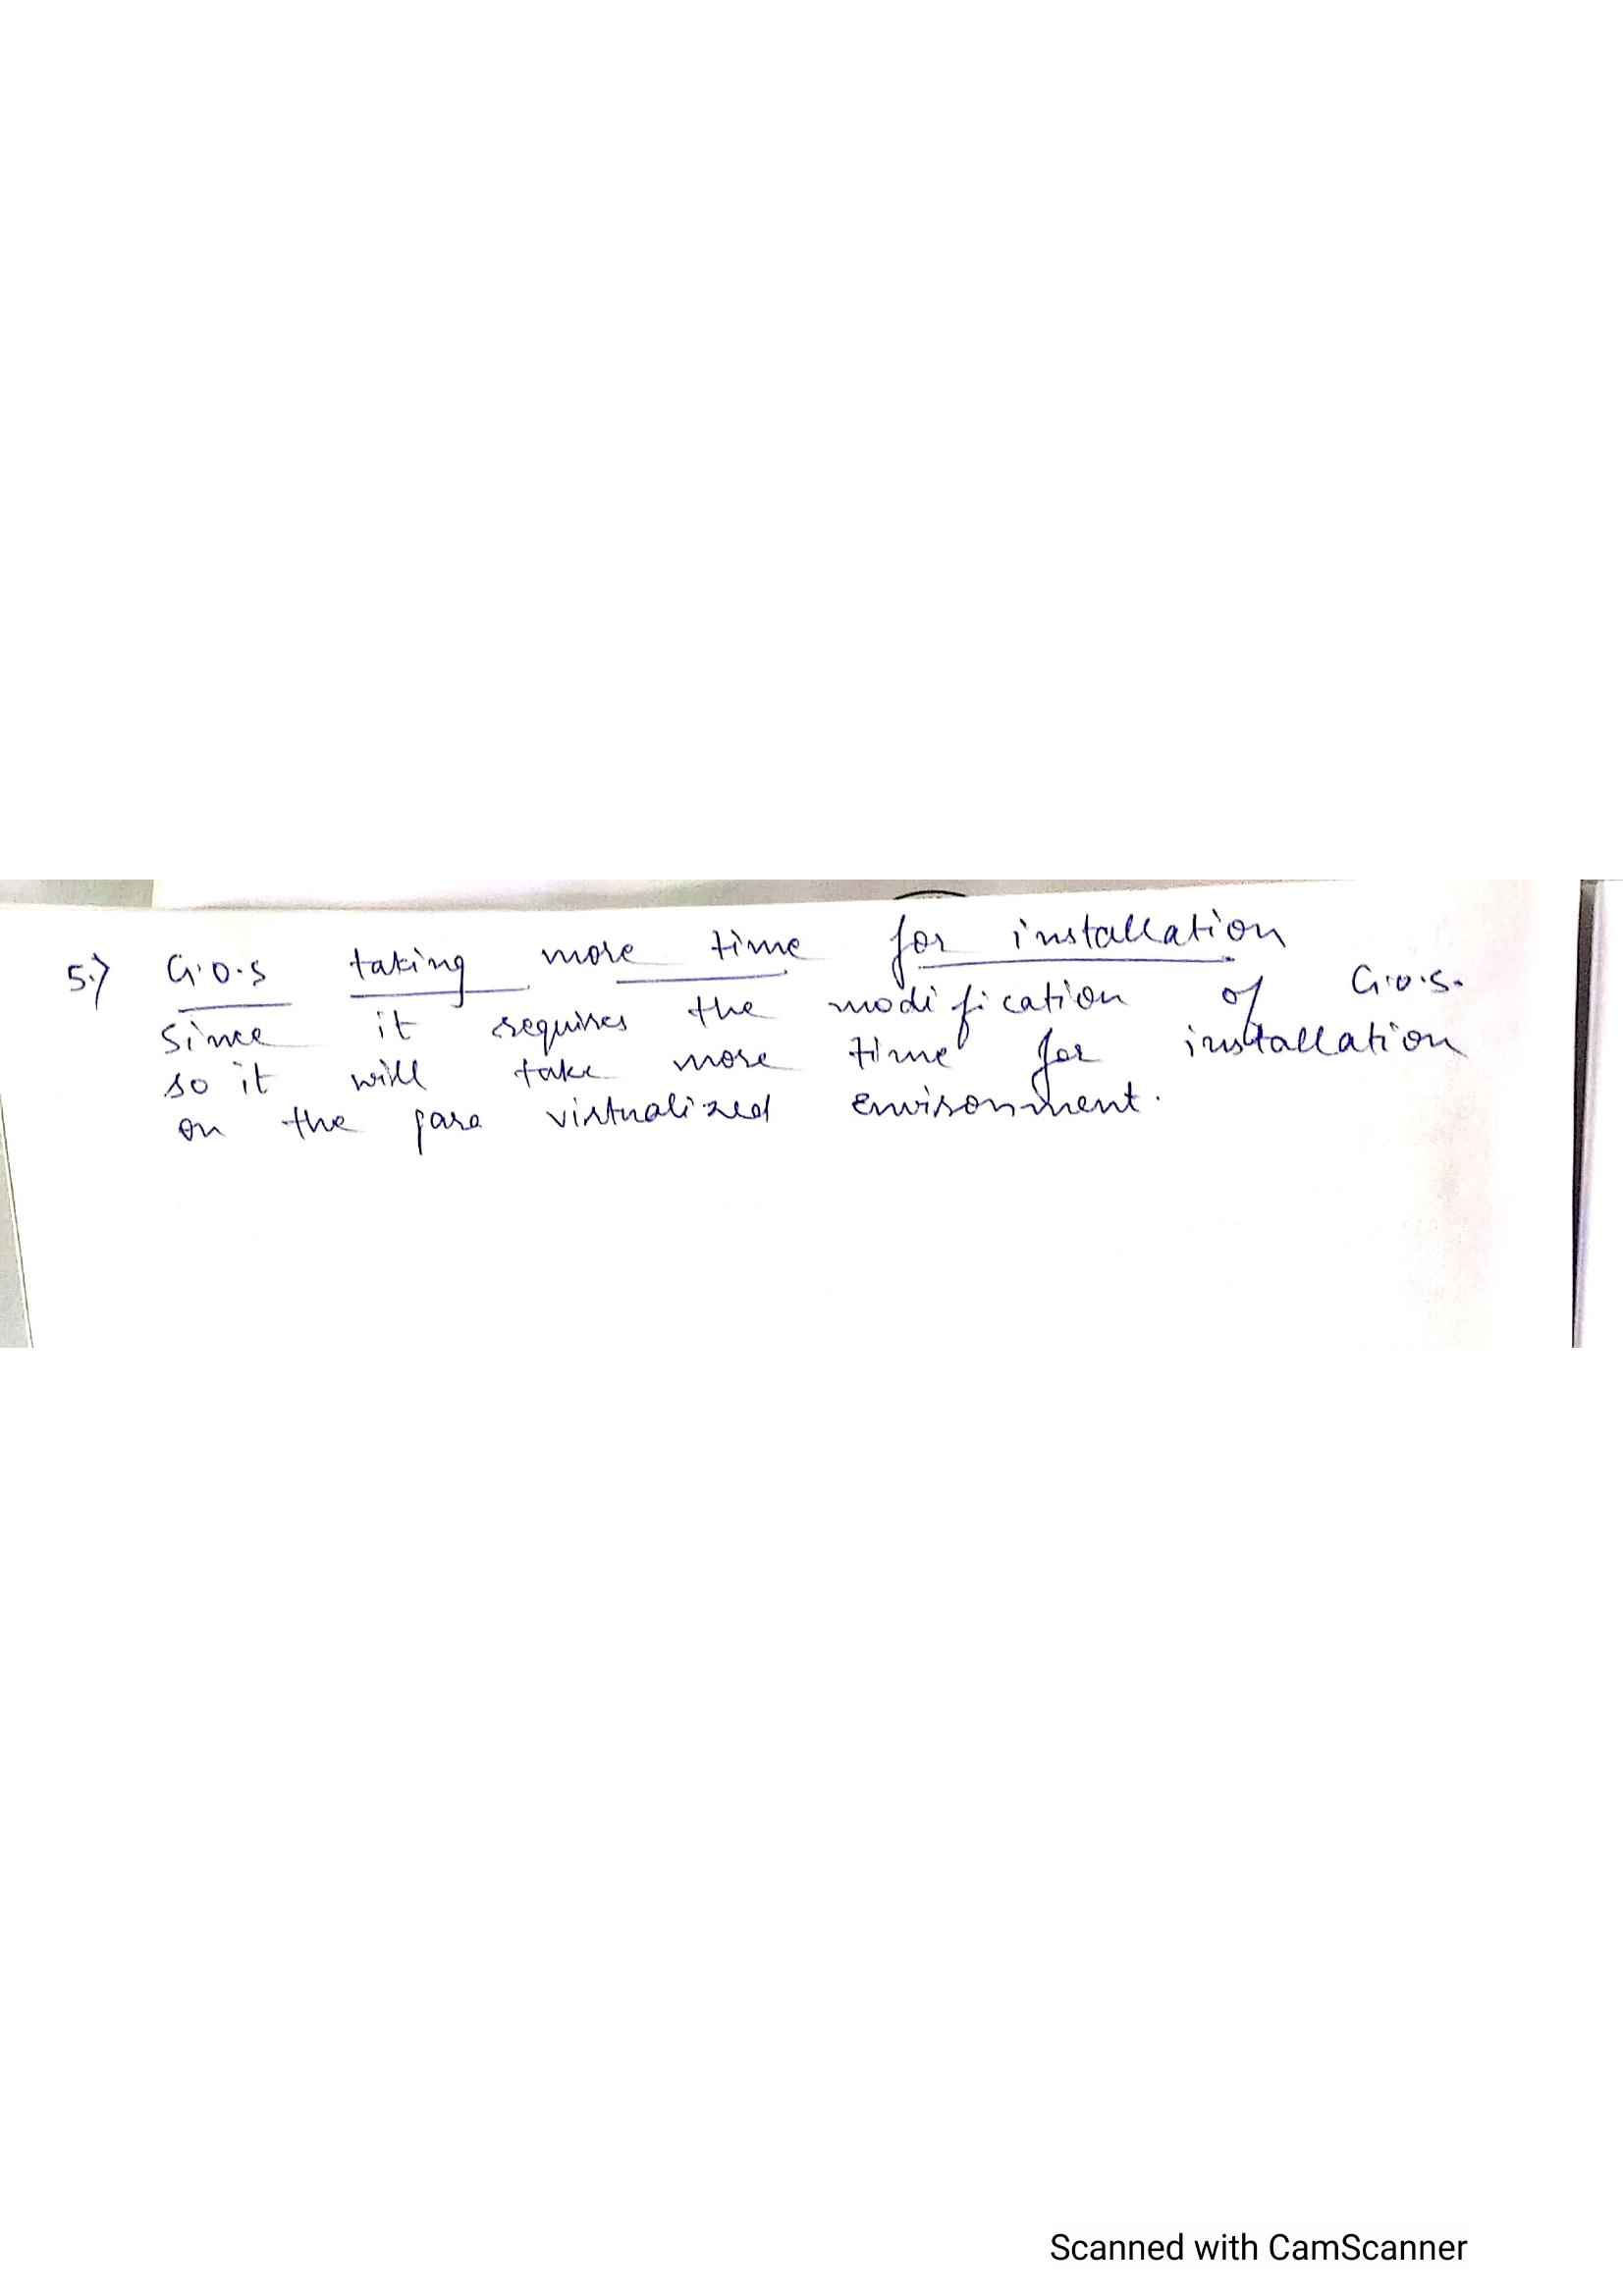 5.) G.O.S taking more time for installation
Since it requires the modification of G.O.S.
so it will take more time for installation
on the para virtualized environment.
Scanned with CamScanner